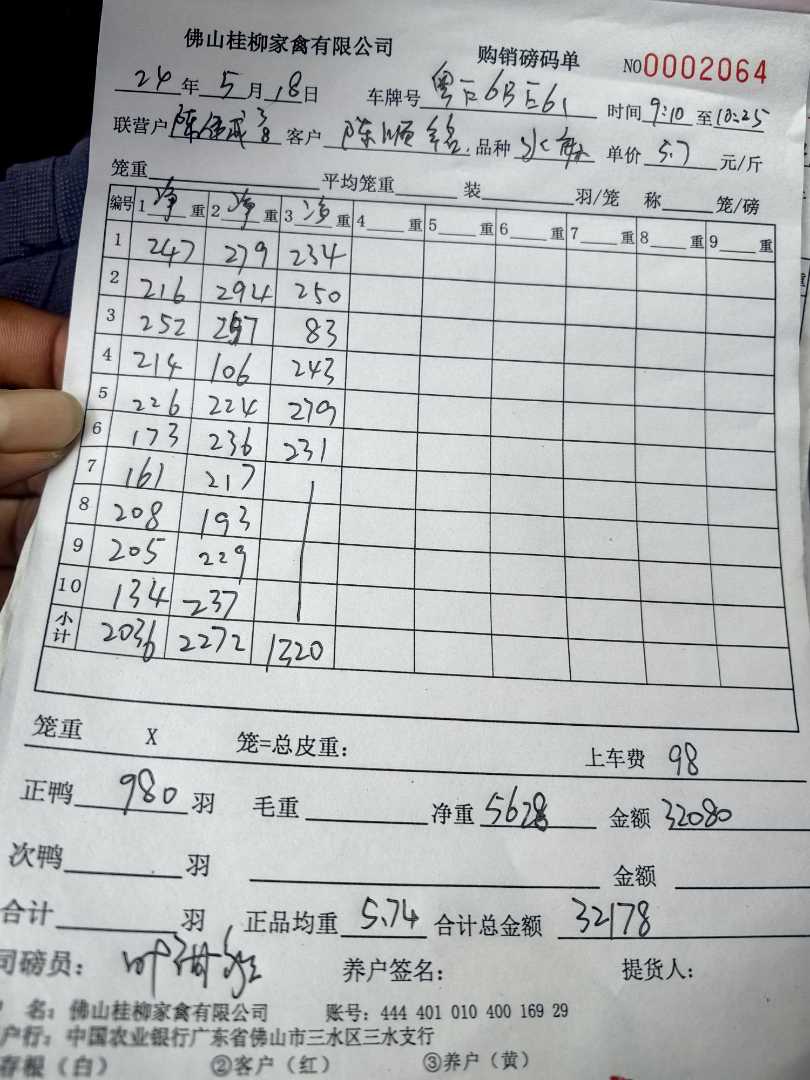 佛山桂柳家禽有限公司 购销磅码单 NO0002064
24年5月18日 车牌号 粤E6BE61 时间9:10至10:25
联营户 陈 客户 陈顺铭 品种 水 单价 5.7 元/斤
笼重 平均笼重 装 羽/笼 称 笼/磅
编号 1净重 2净重 3净重 4重 5重 6重 7重 8重 9重
1 247 279 234
2 216 294 250
3 252 257 83
4 214 106 243
5 226 224 279
6 173 236 231
7 161 217
8 208 193
9 205 229
10 134 237
小计 2036 2272 1320
笼重 X 笼=总皮重: 上车费 98
正鸭 980 羽 毛重 净重 5628 金额 32080
次鸭 羽 金额
合计 羽 正品均重 5.74 合计总金额 32178
司磅员: 叶 养户签名: 提货人:
名: 佛山桂柳家禽有限公司 账号: 444 401 010 400 169 29
户行: 中国农业银行广东省佛山市三水区三水支行
存根(白) ②客户(红) ③养户(黄)